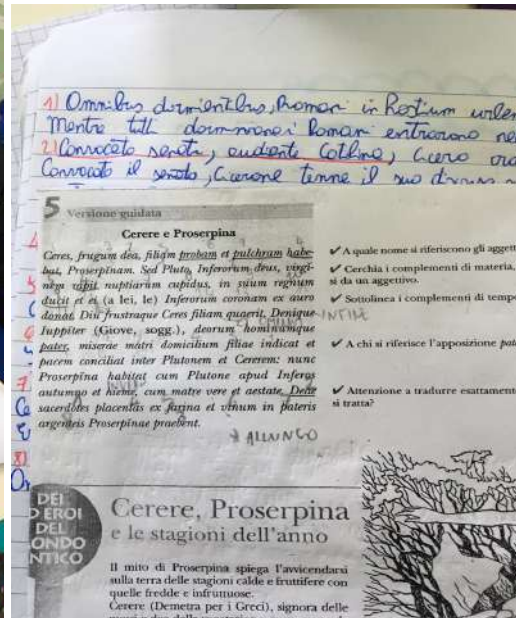 1) Omnibus dormientibus, Romani in hostium
Mentre tutti dormivano i Romani entrarono
2) Convocato senatu, audiente Catilina, Cicero
Convocato il senato, Cicerone tenne il suo
5 Versione guidata
Cerere e Proserpina
Ceres, frugum dea, filiam probam et pulchram habe-
bat, Proserpinam. Sed Pluto, Inferorum deus, virgi-
nem rapit nuptiarum cupidus, in suum regnum
ducit et ei (a lei, le) Inferorum coronam ex auro
donat. Diu frustraque Ceres filiam quaerit. Denique INFINE
Iuppiter (Giove, sogg.), deorum hominumque
pater, miserae matri domicilium filiae indicat et
pacem conciliat inter Plutonem et Cererem: nunc
Proserpina habitat cum Plutone apud Inferos
autumno et hieme, cum matre vere et aestate. Deae
sacerdotes placentas ex farina et vinum in pateris
argenteis Proserpinae praebent.
✔ A quale nome si riferiscono gli
✔ Cerchia i complementi di materia,
si da un aggettivo.
✔ Sottolinea i complementi di
✔ A chi si riferisce l'apposizione
✔ Attenzione a tradurre
si tratta?
DEI
EROI
DEL
Cerere, Proserpina
e le stagioni dell'anno
Il mito di Proserpina spiega l'avvicendarsi
sulla terra delle stagioni calde e fruttifere con
quelle fredde e infruttuose.
Cerere (Demetra per i Greci), signora delle